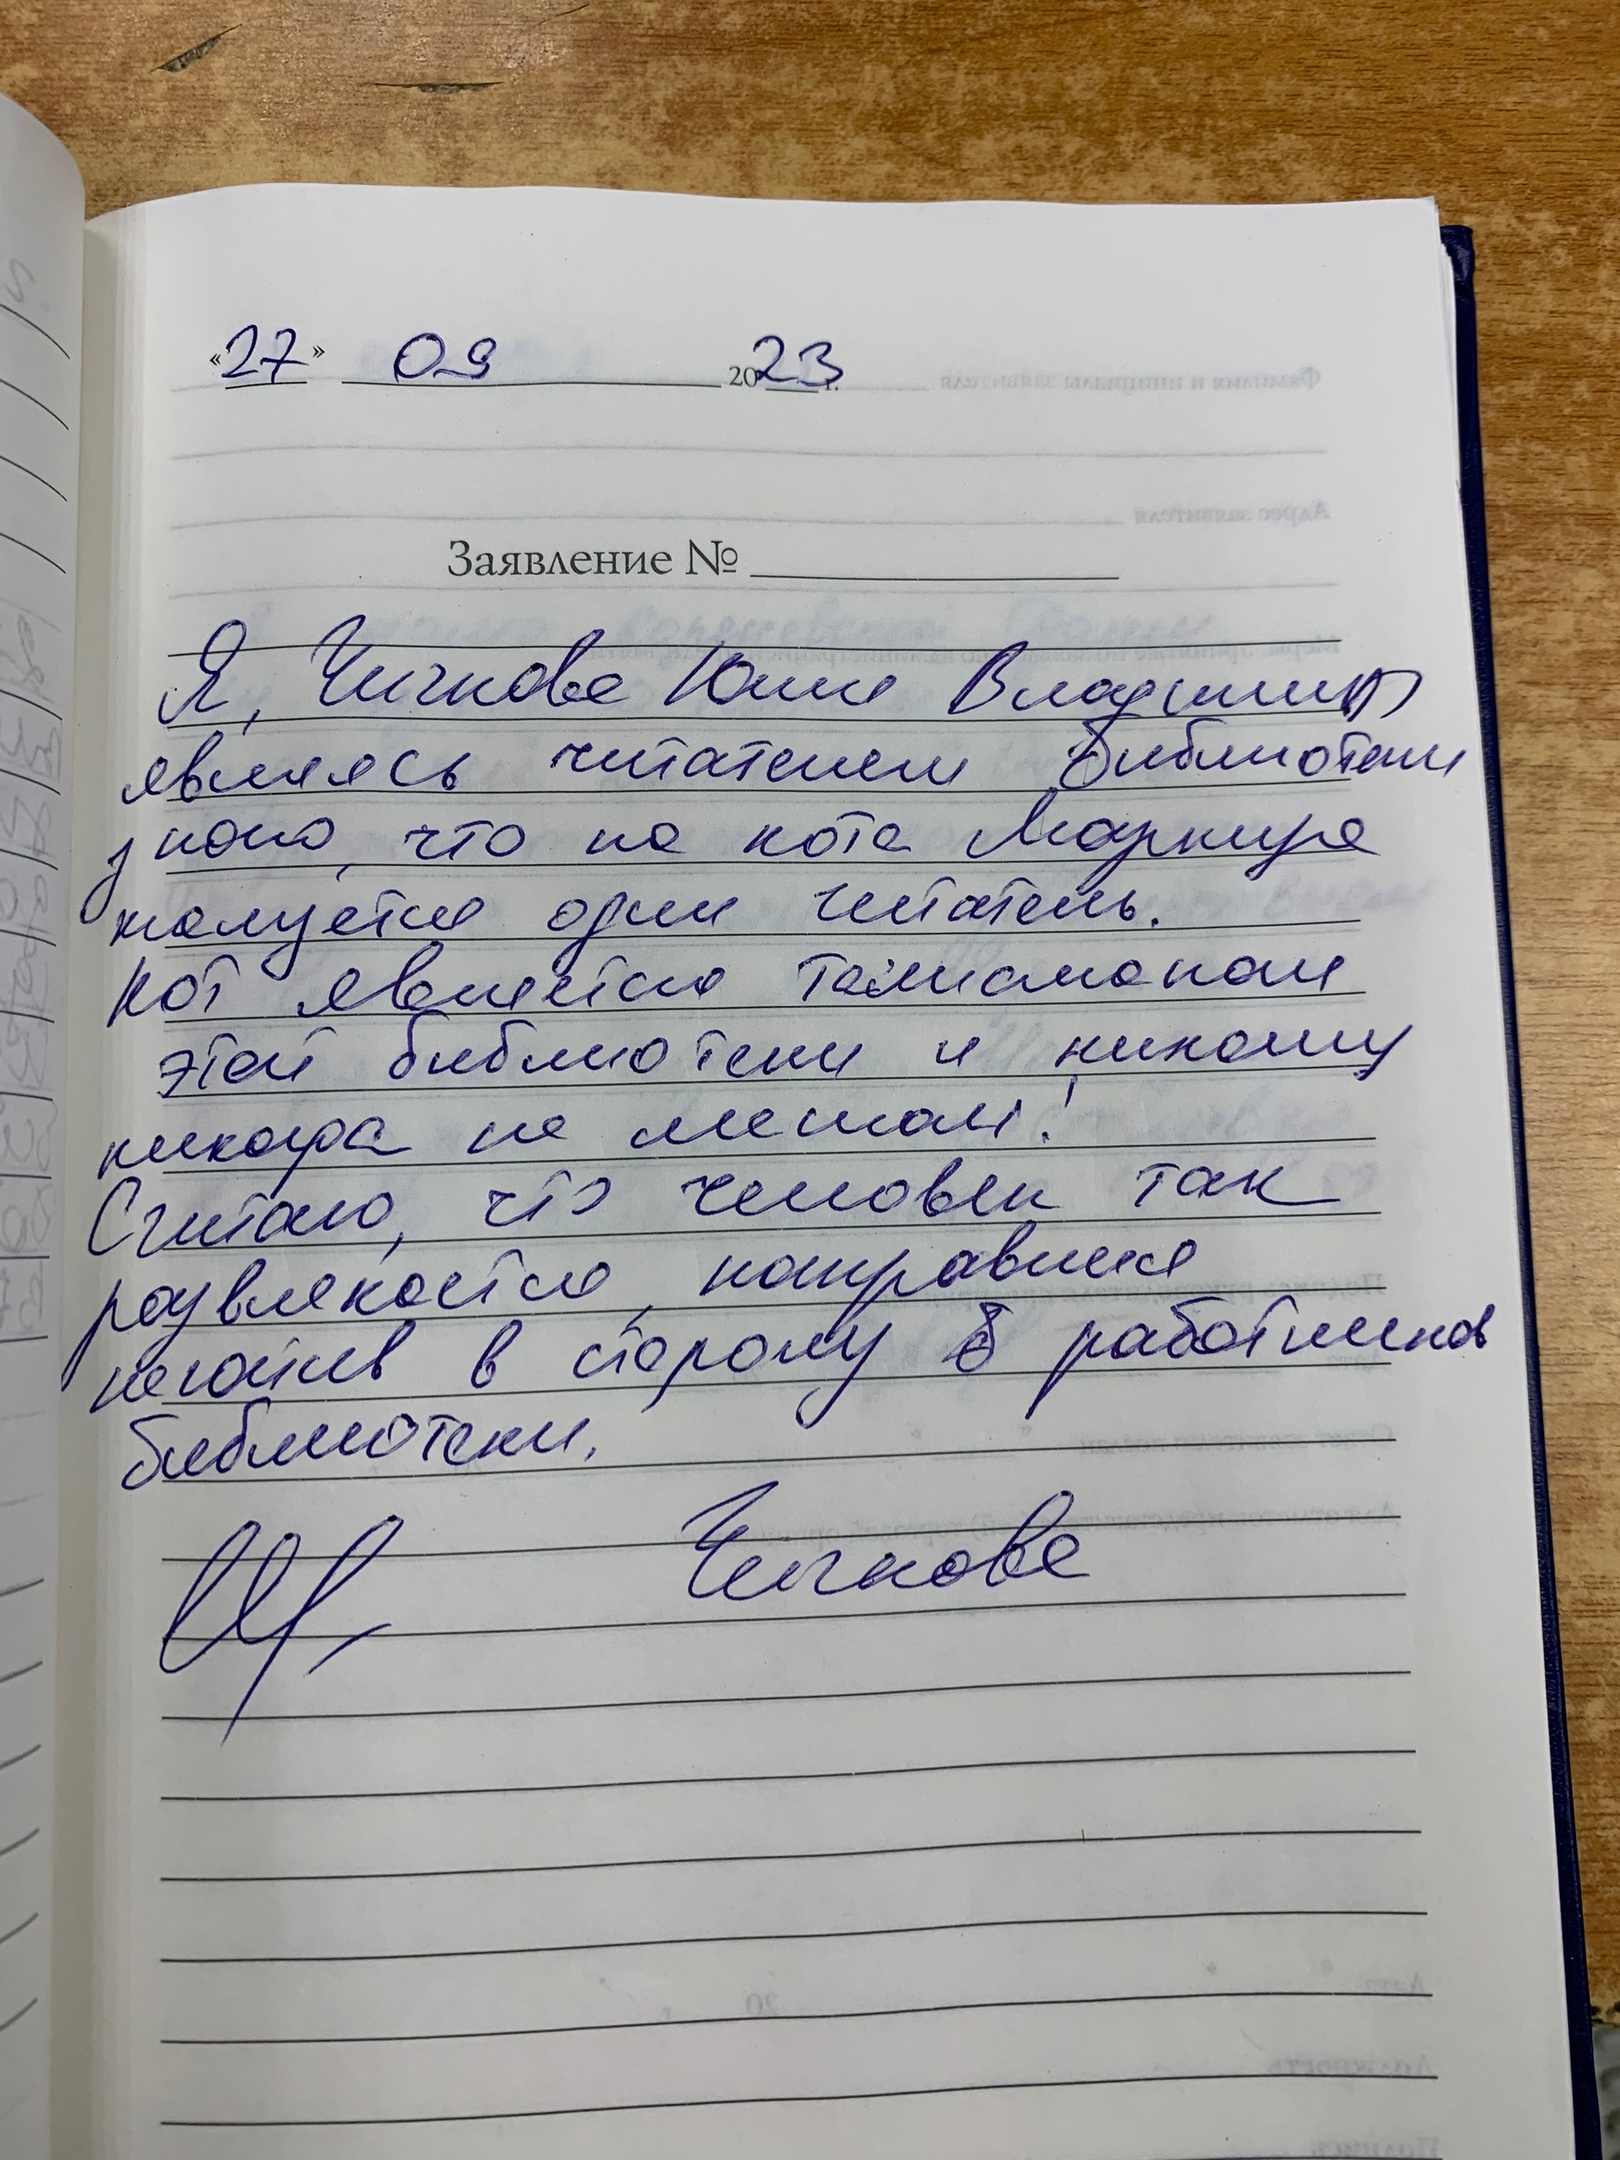 «27» 09 2023 г.
Заявление №
Я, Чичкова Юлия Владимир
являюсь читателем библиотеки
знаю, что на кота Маркиза
жалуется один читатель.
Кот является талисманом
этой библиотеки и никому
никогда не мешал!
Считаю, что человек так
развлекается, направляя
негатив в сторону работников
библиотеки.
Чичкова